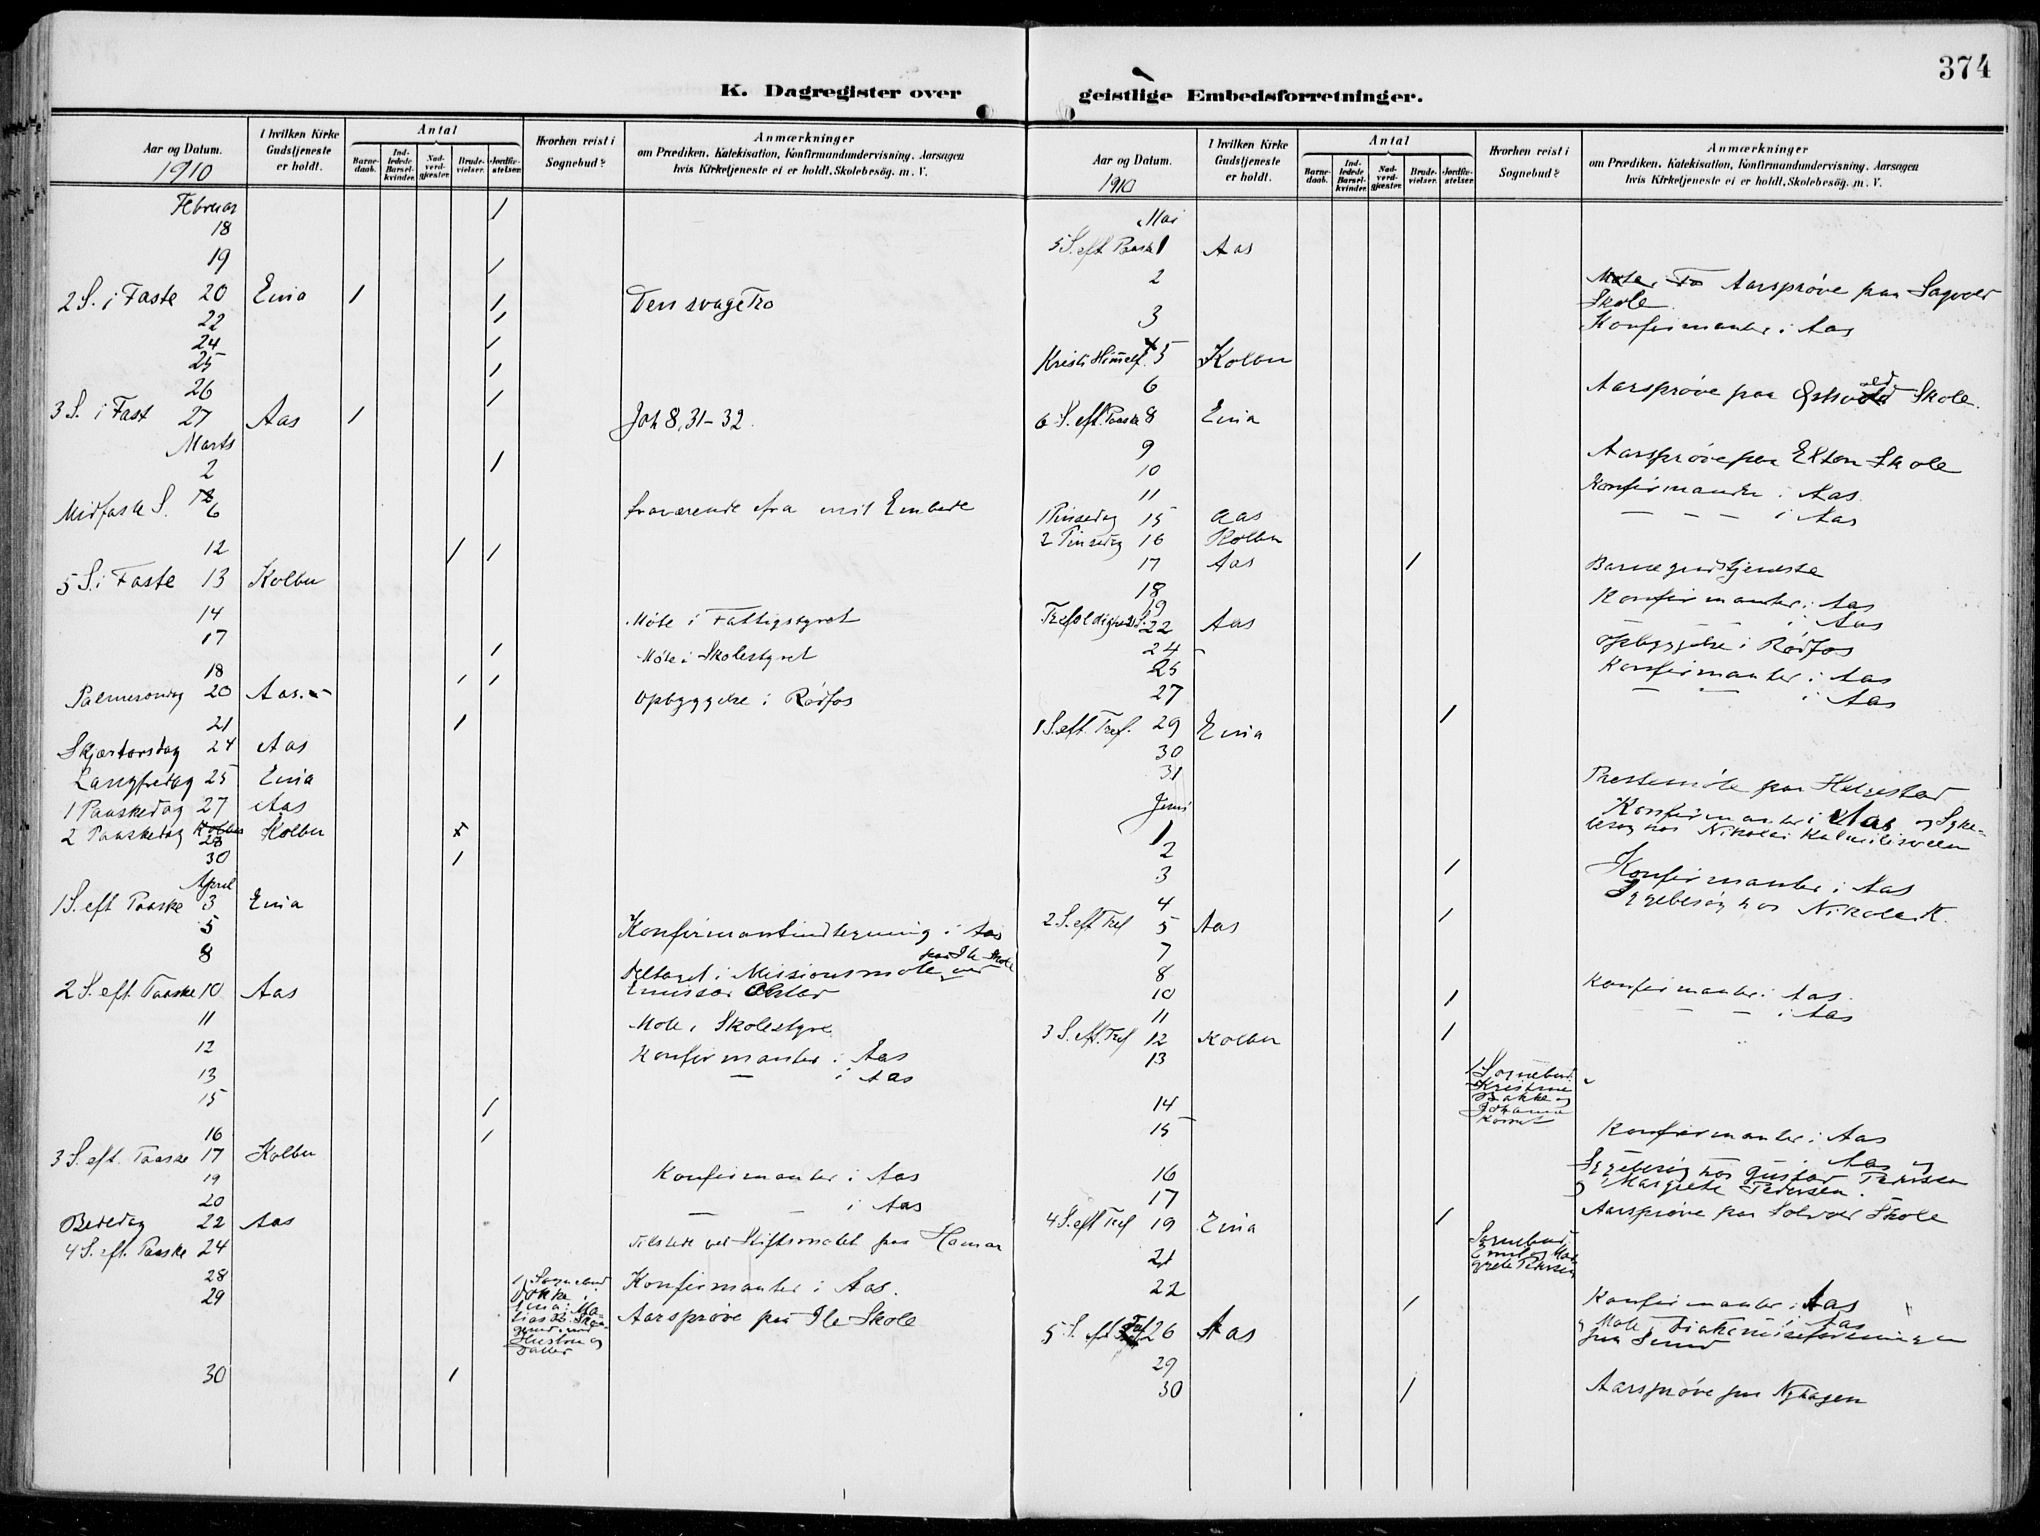 374
K. Dagregister over
Aar og Datum.
1910
I hvilken Kirke
Gudstjeneste
er holdt.
Antal
Barne-
daab.
Ind-
ledede
Barsel-
kvinder.
Nad-
verd-
gjæster.
Brude-
vielser.
Jordfæ-
stelser.
Hvorhen reist i
Sognebud?
Anmærkninger
om Prædiken, Katekisation, Konfirmandundervisning, Aarsagen
hvis Kirketjeneste ei er holdt, Skolebesøg, m. V.
Februar 1
18
19 1
2 S. i Faste 20 Eina 1 1 Den svage Tro
22 1
24 1
25 1
26 1
3 S. i Fast 27 Aas 1 Joh 8, 31-32.
Marts
2 1
Midfaste S. 6 fraværende fra mit Embede
12 1 1
5 S. i Faste 13 Kolbu
14 Møte i Fattigstyret
17 1 Møte i Skolestyret
18 1 1
Palmesøndag 20 Aas. Opbyggelse i Rødfos
21 1
Skjærtorsdag 24 Aas
Langfredag 25 Eina
1 Paaskedag 27 Aas
2 Paaskedag 28 Kolbu
30 1
April
1 S. eft Paaske 3 Eina
5 Konfirmantindtegning i Aas
8 Deltaget i Missionsmøte paa Ile Skole ved
Emissær
2 S. eft. Paaske 10 Aas
11 Møte i Skolestyre
12 Konfirmanter i Aas
13 — i Aas
15 1
16 1
3 S. eft. Paaske 17 Kolbu
19 Konfirmanter i Aas
20 — — i Aas
Bededag 22 Aas
4 S. eft. Paaske 24 Tilstede ved Stiftsmøtet paa Hamar
28 1 Sognebud Konfirmanter i Aas.
29 Aarsprøve paa Ile Skole
Hustru og
Datter
30 1
geistlige Embedsforretninger.
Aar og Datum.
1910
I hvilken Kirke
Gudstjeneste
er holdt.
Antal
Barne-
daab.
Ind-
ledede
Barsel-
kvinder.
Nad-
verd-
gjæster.
Brude-
vielser.
Jordfæ-
stelser.
Hvorhen reist i
Sognebud?
Anmærkninger
om Prædiken, Katekisation, Konfirmandundervisning, Aarsagen
hvis Kirketjeneste ei er holdt, Skolebesøg, m. V.
Mai
5 S. eft. Paaske 1 Aas
2 Aarsprøve paa Sagvold
Skole
3 Konfirmanter i Aas
Kristi Himmelf. 5 Kolbu
6 Aarsprøve paa Skole.
6 S. eft. Paaske 8 Eina
9 Aarsprøve paa Elton Skole
10 Konfirmanter i Aas.
11 — — — i Aas
1 Pinsedag 15 Aas
2 Pinsedag 16 Kolbu
17 Aas 1 Barnegudstjeneste
18 Konfirmanter i Aas
19 i Aas
Trefoldigheds S. 22 Aas Opbyggelse i Rødfos
24 Konfirmanter i Aas
25 — — i Aas
27 1
1 S. eft. Tref. 29 Eina
30
31 Prestemøte paa
Juni Konfirmanter i Aas og Syke-
1 besøg hos Nikolai
2
3 1 Konfirmanter i Aas
4 Sygebesøg hos Nikolai K.
2 S. eft Tref 5 Aas 1
7
8 Konfirmanter i Aas.
10 1 — — — i Aas
11
3 S. eft. Tref 12 Kolbu 1
13 1 Sognebud
Kristine
Bakke og
Johanna
14
15 Konfirmanter i Aas
16 i Aas og
Sygebesøg hos Gustav Pedersen
17 og Margrete Pedersen.
4 S. eft Tref 19 Eina 1 Aarsprøve paa Skole
21 Sognebud
Emil og Mar
grete Pedersen
22 Konfirmanter i Aas
5 S. eft Tref 26 Aas 1 i Aas
og Møte i Diakonisseforeningen
29
30 1 Aarsprøve paa Nyhagen